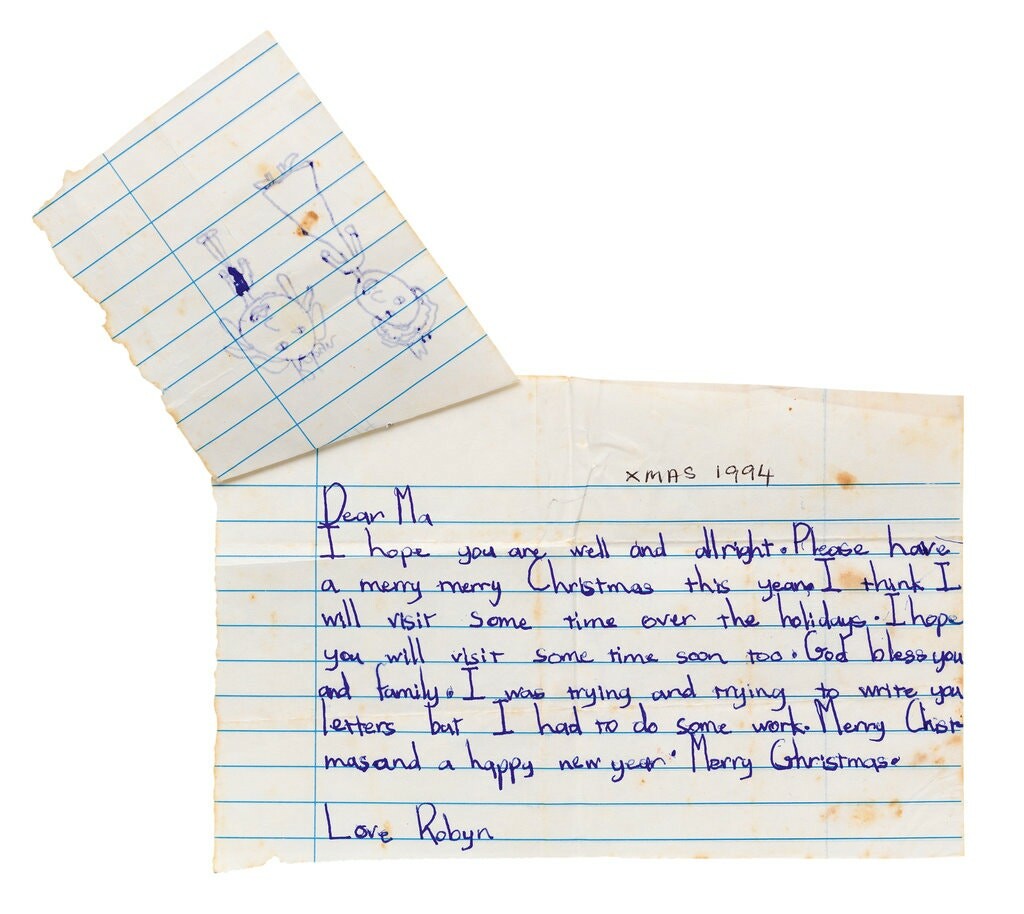 XMAS 1994
Dear Ma
I hope you are well and allright. Please have
a merry merry Christmas this year. I think I
will visit some time over the holidays. I hope
you will visit some time soon too. God bless you
and family. I was trying and trying to write you
letters but I had to do some work. Merry Chist-
mas and a happy new year. Merry Christmas.
Love Robyn